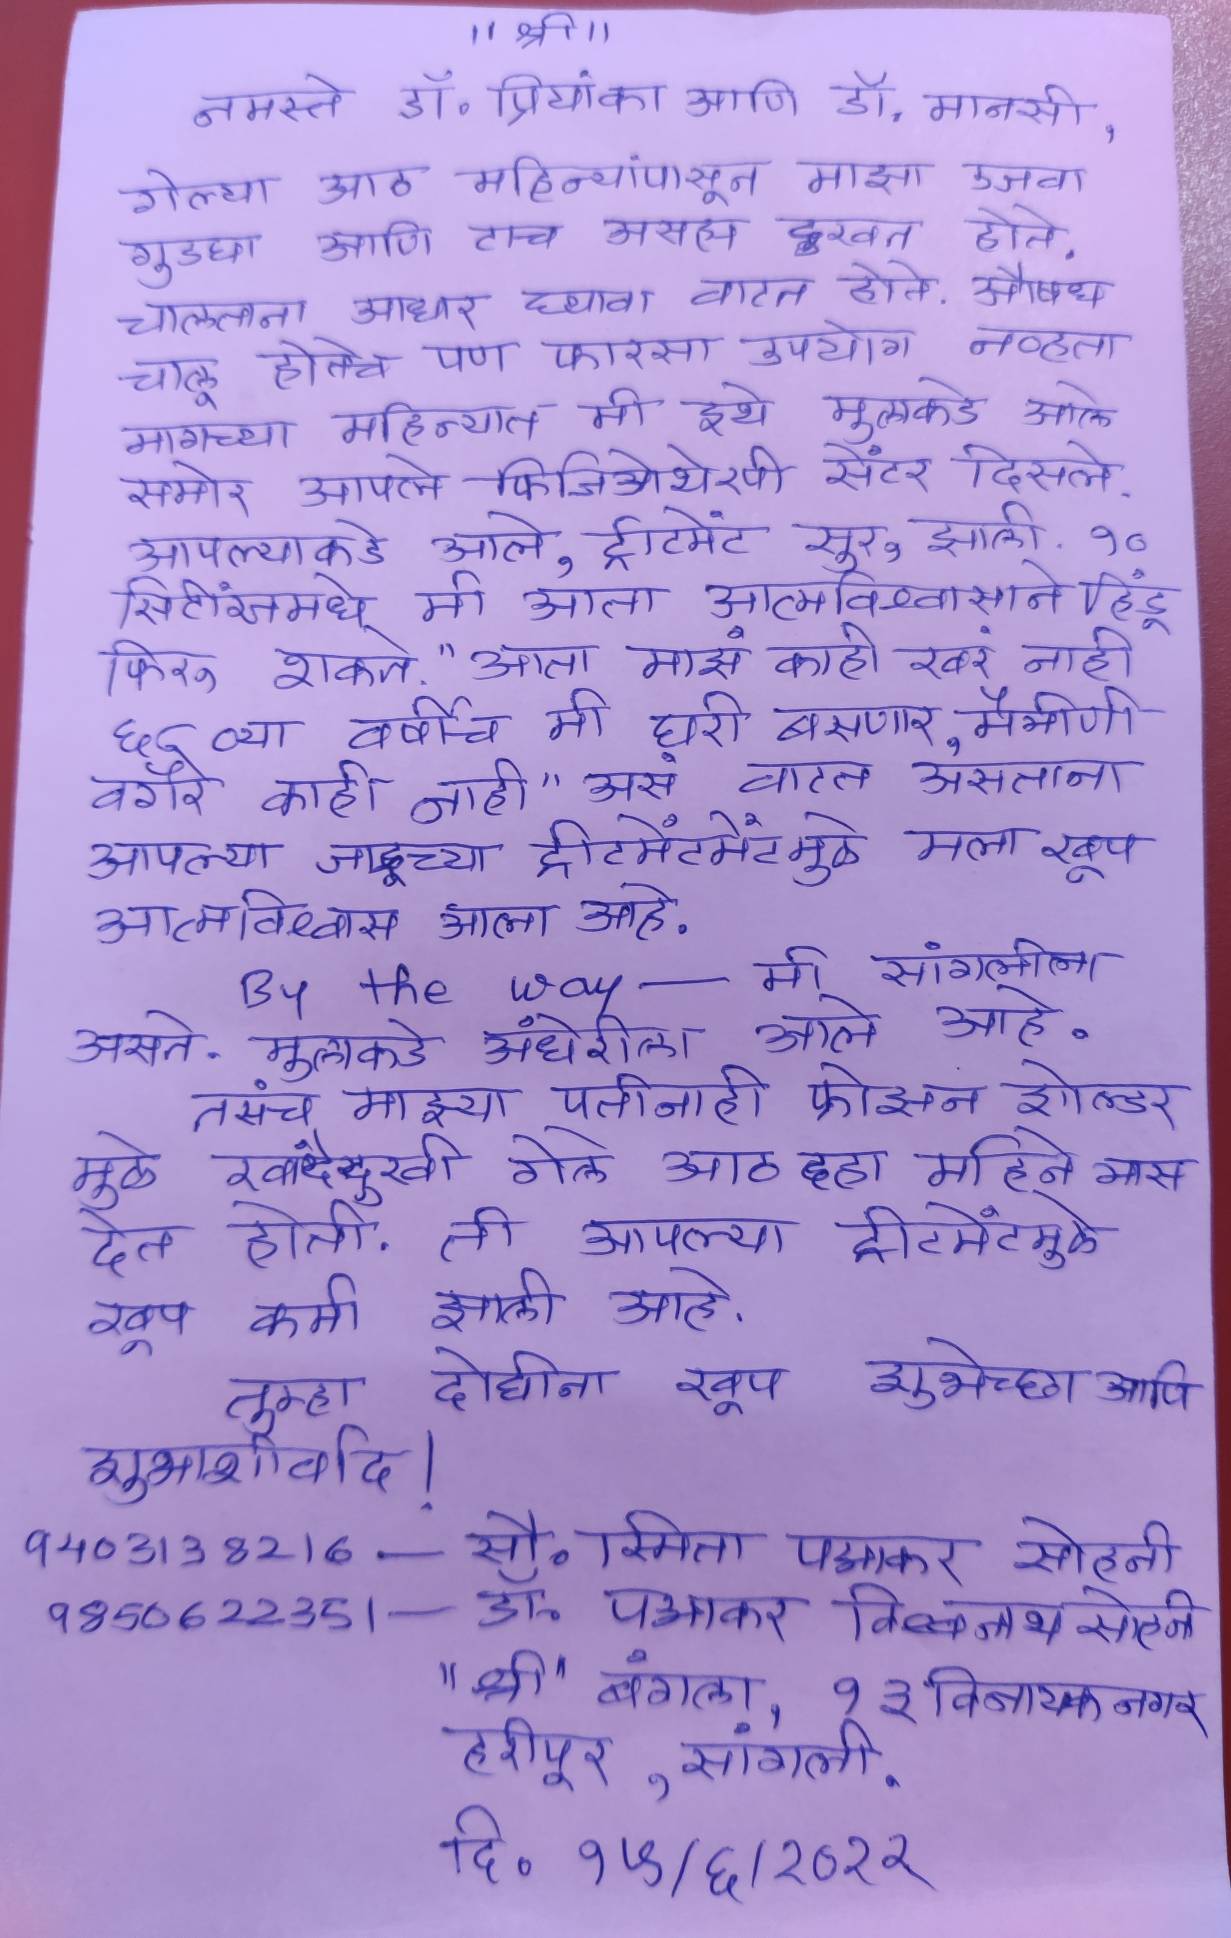 ॥ श्री ॥
नमस्ते डॉ. प्रियांका आणि डॉ. मानसी,
गेल्या आठ महिन्यांपासून माझा उजवा
गुडघा आणि टाच असह्य दुखत होते.
चालताना आधार घ्यावा वाटत होते. औषध
चालू होतेच पण फारसा उपयोग नव्हता
मागच्या महिन्यात मी इथे मुलाकडे आले
समोर आपले फिजिओथेरपी सेंटर दिसले.
आपल्याकडे आले, ट्रीटमेंट सुरु झाली. १०
सिटींग्जमधे मी आता आत्मविश्वासाने हिंडू
फिरु शकते. "आता माझं काही खरं नाही
६८ व्या वर्षीच मी घरी बसणार, मैत्रीणी
वगैरे काही नाही" असं वाटत असताना
आपल्या जादूच्या ट्रीटमेंटमेंटमुळे मला खूप
आत्मविश्वास आला आहे.
By the way — मी सांगलीला
असते. मुलाकडे अंधेरीला आले आहे.
तसंच माझ्या पतीनाही फ्रोझन शोल्डर
मुळे खांदेदुखी गेले आठ दहा महिने त्रास
देत होती. ती आपल्या ट्रीटमेंटमुळे
खूप कमी झाली आहे.
तुम्हा दोघींना खूप शुभेच्छा आणि
शुभाशीर्वाद!
9403138216 — सौ. स्मिता पद्माकर सोहनी
9850622351 — डॉ. पद्माकर विश्वनाथ सोहनी
"श्री" बंगला, १३ विनायक नगर
हरीपूर, सांगली.
दि. १५/६/२०२२